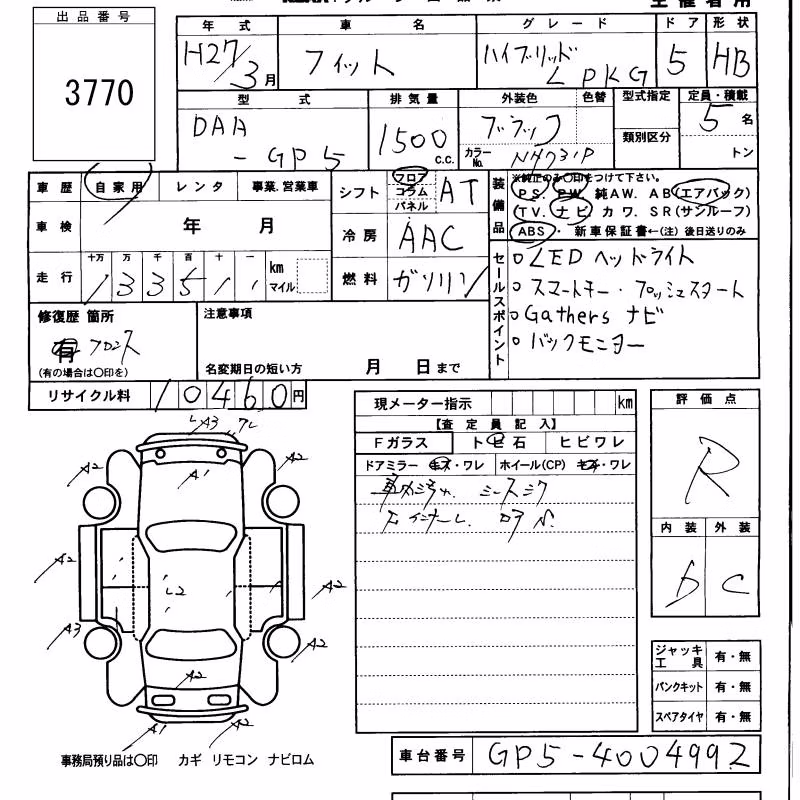 出品番号
3770
年式 車名 グレード ドア 形状
H27/3月 フィット ハイブリッド L PKG 5 HB
型式 排気量 外装色 色替 型式指定 定員・積載
DAA-GP5 1500 c.c. ブラック カラーNo. NH731P 類別区分 5名
トン
車歴 自家用 レンタ 事業.営業車
車検 年 月
走行 十万 万 千 百 十 一 km マイル
133511
シフト フロア コラム パネル AT
冷房 AAC
燃料 ガソリン
装備品 ※純正のみ〇印をつけて下さい。
PS. PW. 純AW. AB(エアバック)
(TV. ナビ カワ. SR(サンルーフ)
ABS・ 新車保証書←(注)後日送りのみ
セールスポイント
LEDヘッドライト
スマートキー・プッシュスタート
Gathers ナビ
バックモニター
修復歴 箇所
有 フロント
(有の場合は〇印を)
注意事項
名変期日の短い方 月 日まで
リサイクル料 10460円
現メーター指示 km
【査定員記入】
Fガラス トビ石 ヒビワレ
ドアミラー キズ・ワレ ホイール(CP) キズ・ワレ
評価点
R
内装 外装
D C
A3
A2 A1 A2
A2 A2
A2
A3 A2
A2
A1 A2
ジャッキ工具 有・無
パンクキット 有・無
スペアタイヤ 有・無
事務局預り品は〇印 カギ リモコン ナビロム
車台番号 GP5-4004992